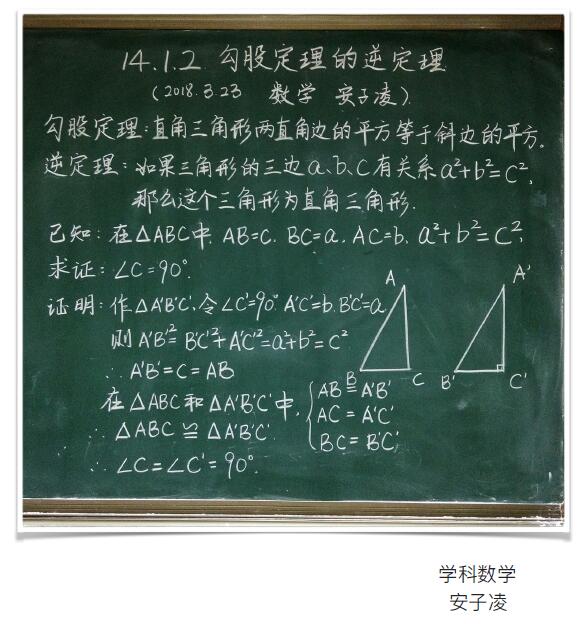 14.1.2 勾股定理的逆定理
(2018.3.23 数学 安子凌)
勾股定理:直角三角形两直角边的平方等于斜边的平方.
逆定理:如果三角形的三边a、b、c有关系a²+b²=c²,
那么这个三角形为直角三角形.
已知:在△ABC中, AB=c, BC=a, AC=b, a²+b²=c²,
求证:∠C=90°.
证明:作△A'B'C',令∠C'=90° A'C'=b. B'C'=a
则A'B'²=BC'²+A'C'²=a²+b²=c²
∴A'B'=c=AB
在△ABC和△A'B'C'中,
AB=A'B'
AC=A'C'
BC=B'C'
∴△ABC≌△A'B'C'
∴∠C=∠C'=90°.
A
B
C
A'
B'
C'
学科数学
安子凌